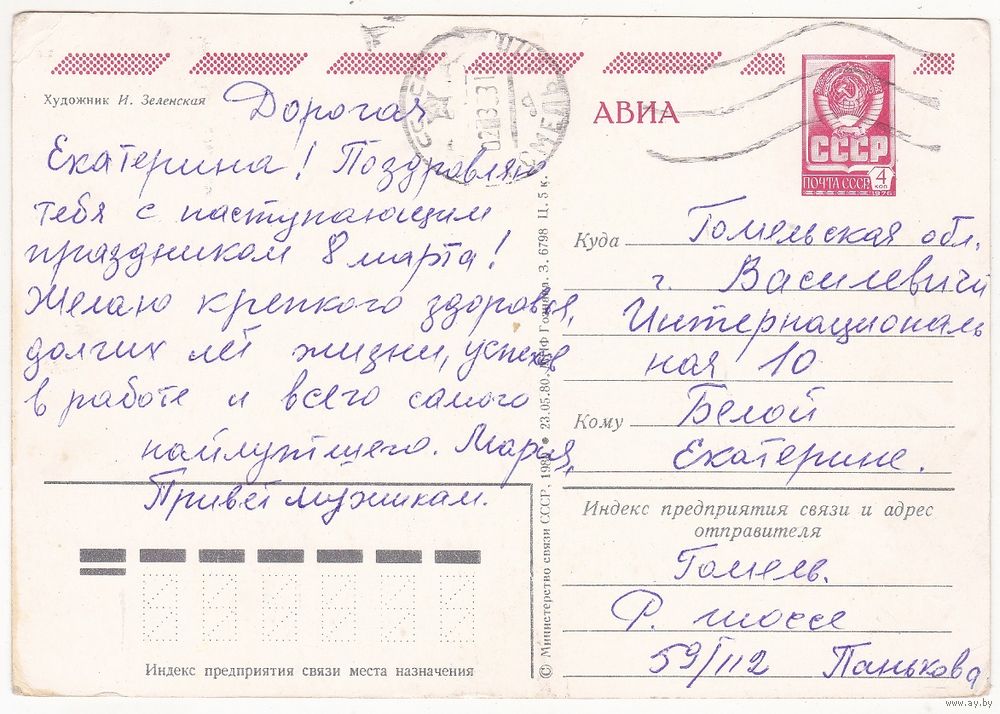 Художник И. Зеленская
Дорогая
Екатерина! Поздравляю
тебя с наступающим
праздником 8 марта!
Желаю крепкого здоровья,
долгих лет жизни, успехов
в работе и всего самого
наилучшего. Мария,
Привет мужикам.
Индекс предприятия связи места назначения
© Министерство связи СССР. 1980 • 23.05.80. З. 6798 Ц. 5 к.
АВИА
СССР
ПОЧТА СССР 4 КОП
1976
Куда Гомельская обл.
г. Василевичи
Интернациональ
ная 10
Кому Белой
Екатерине.
Индекс предприятия связи и адрес
отправителя
Гомель.
Р. шоссе
59/112 Панькова
www.ay.by